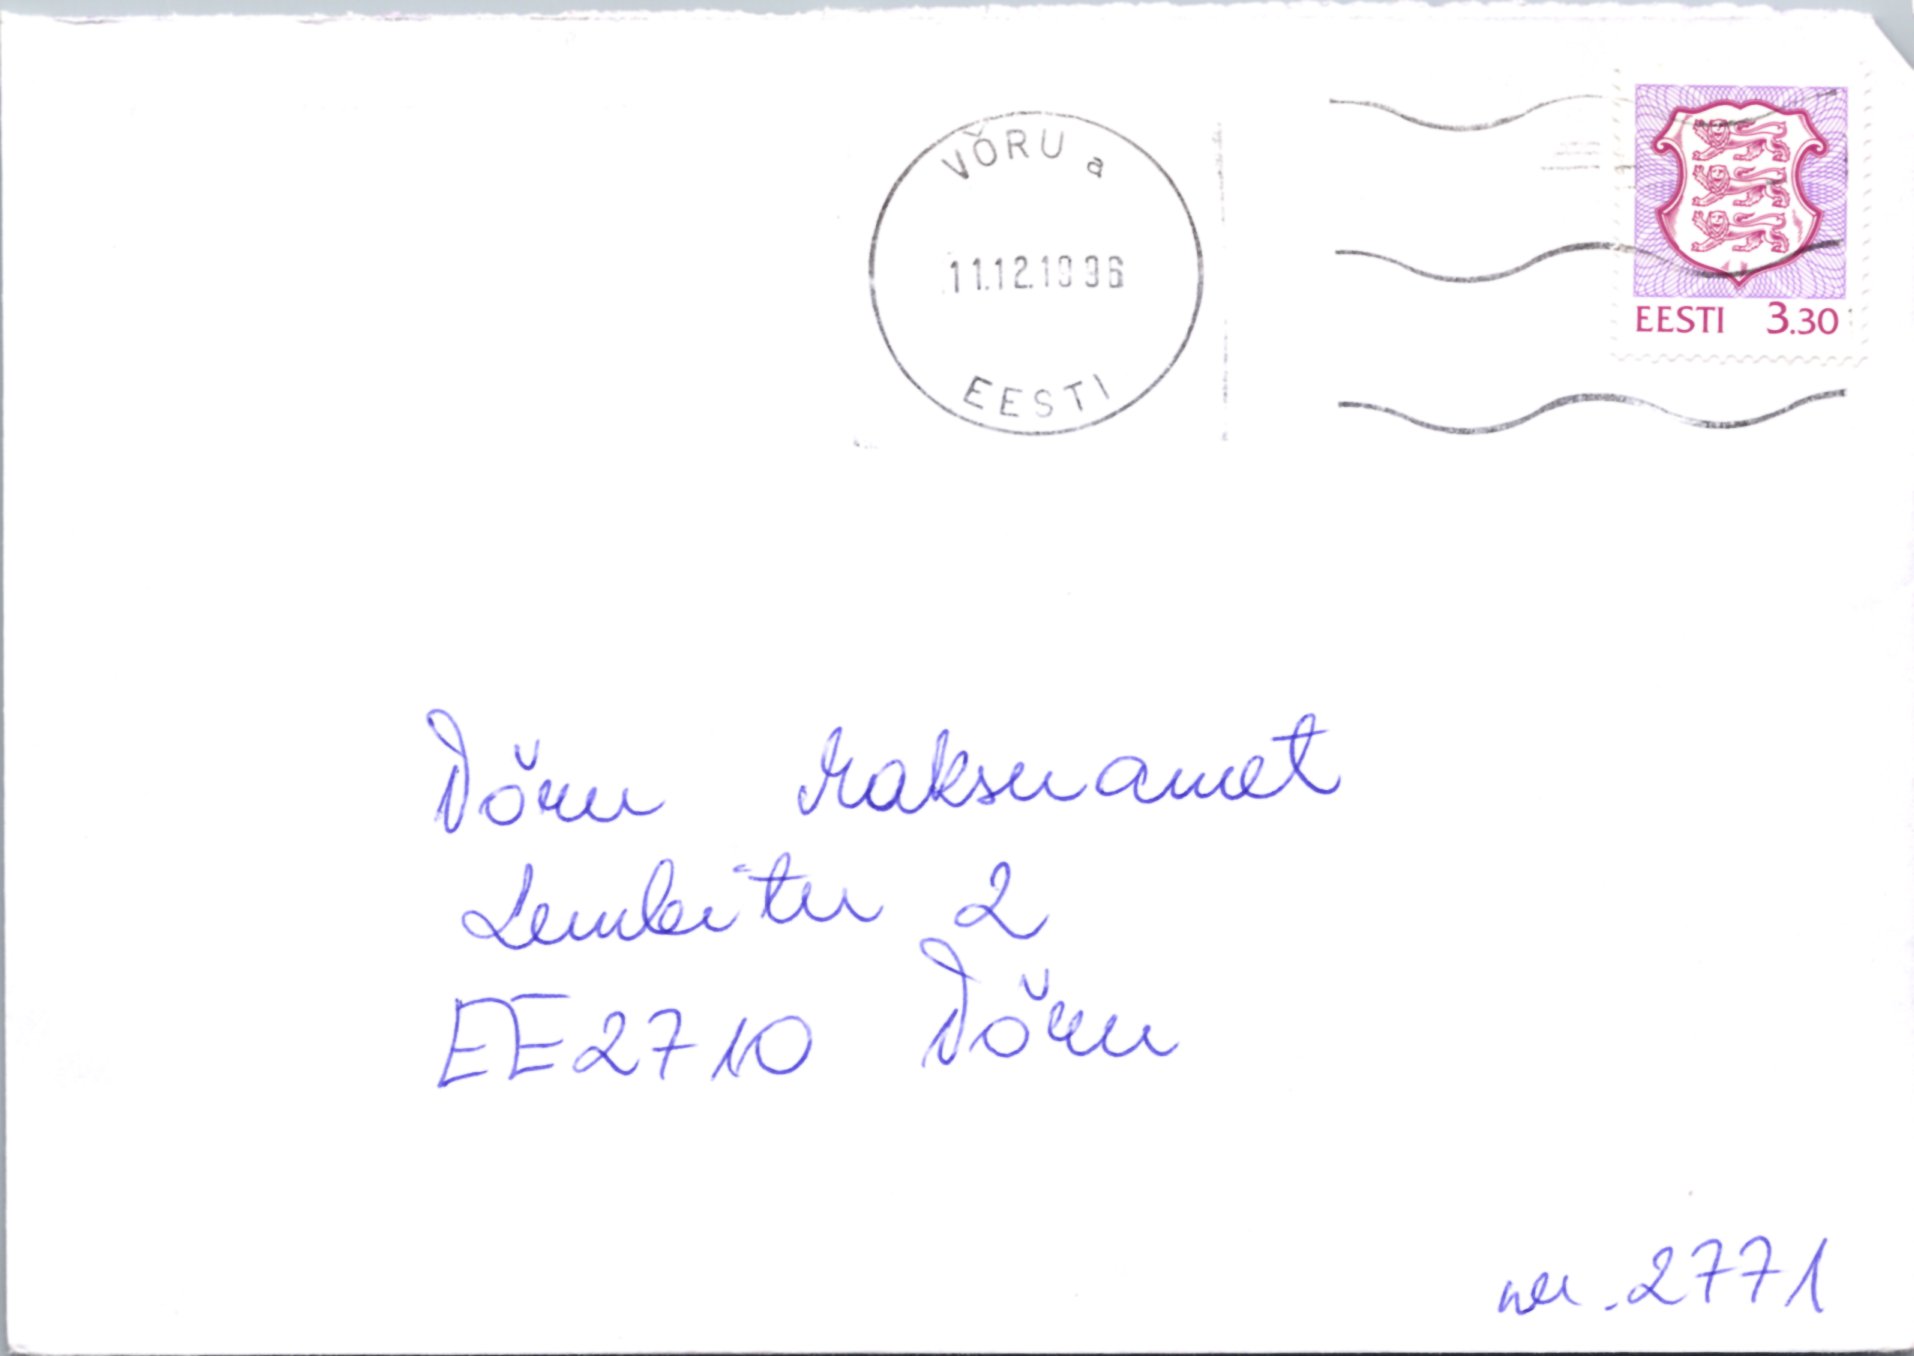 VÕRU a
11.12.1996
EESTI
EESTI 3.30
Võru Maksuamet
Lembitu 2
EE2710 Võru
nr. 2771